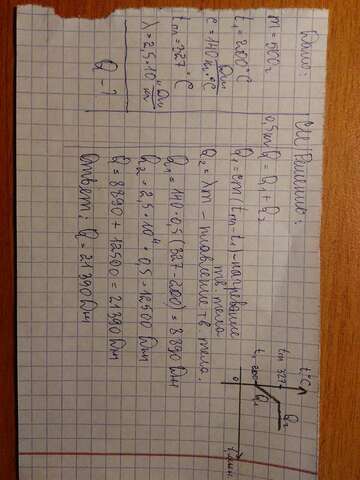 Дано:
m = 500г
t₁ = 200°C
c = 140 Дж/кг·°C
tпл = 327°C
λ = 2,5·10⁴ Дж/кг
Q - ?
СИ
0,5 кг
Решение:
Q = Q₁ + Q₂
Q₁ = cm(tпл - t₁) - нагревание
тв. тела
Q₂ = λm - плавление тв. тела.
Q₁ = 140·0,5(327-200) = 8890 Дж
Q₂ = 2,5·10⁴·0,5 = 12500 Дж
Q = 8890 + 12500 = 21390 Дж
Ответ: Q = 21390 Дж
t,°C
tпл 327
Q₂
t₁ 200
Q₁
0
t, мин.